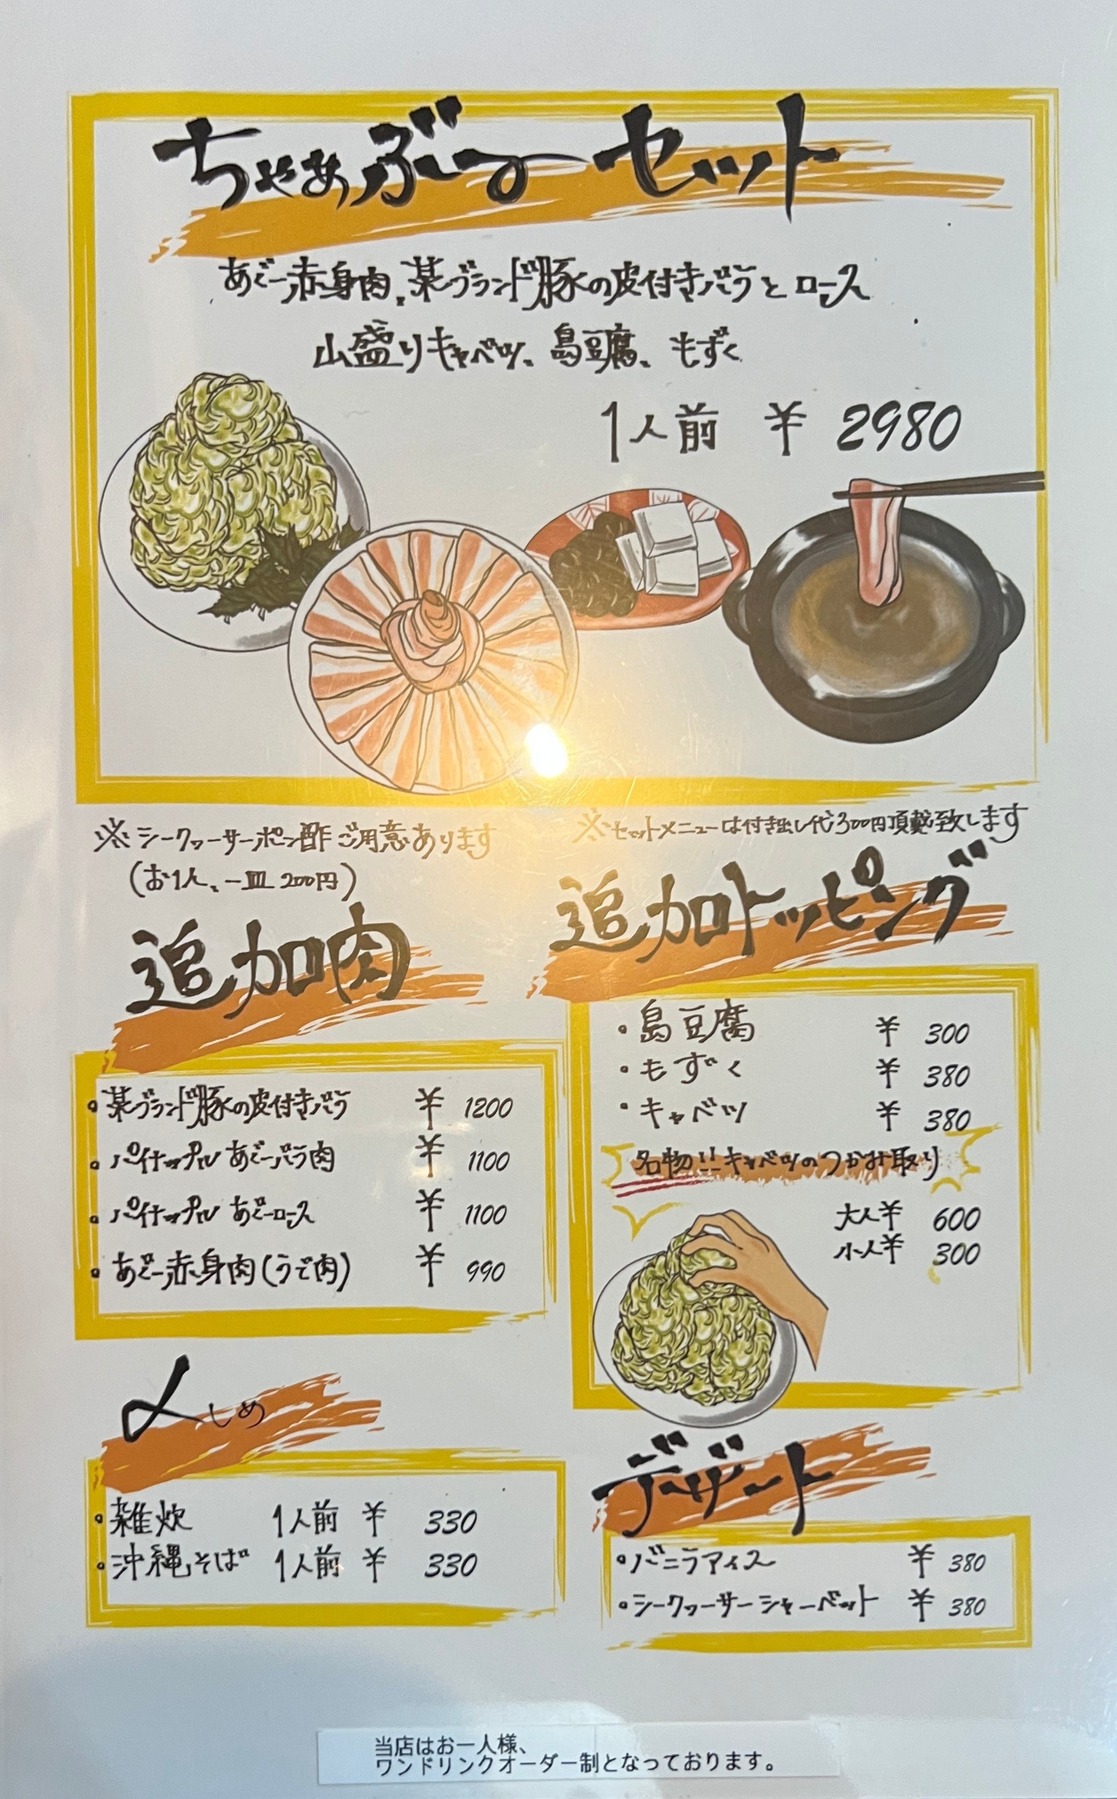 ちゃあぶー セット
あぐー赤身肉、某ブランド豚の皮付きバラとロース
山盛りキャベツ、島豆腐、もずく
1人前 ¥ 2980
※シークァーサーポン酢ご用意あります
(お1人、一皿 200円)
※セットメニューは付き出し代300円頂戴致します
追加肉
・某ブランド豚の皮付きバラ ¥ 1200
・パイナップルあぐーバラ肉 ¥ 1100
・パイナップルあぐーロース ¥ 1100
・あぐー赤身肉(うで肉) ¥ 990
追加トッピング
・島豆腐 ¥ 300
・もずく ¥ 380
・キャベツ ¥ 380
名物!!キャベツのつかみ取り
大人¥ 600
小人¥ 300
〆しめ
・雑炊 1人前 ¥ 330
・沖縄そば 1人前 ¥ 330
デザート
・バニラアイス ¥ 380
・シークァーサーシャーベット ¥ 380
当店はお一人様、
ワンドリンクオーダー制となっております。